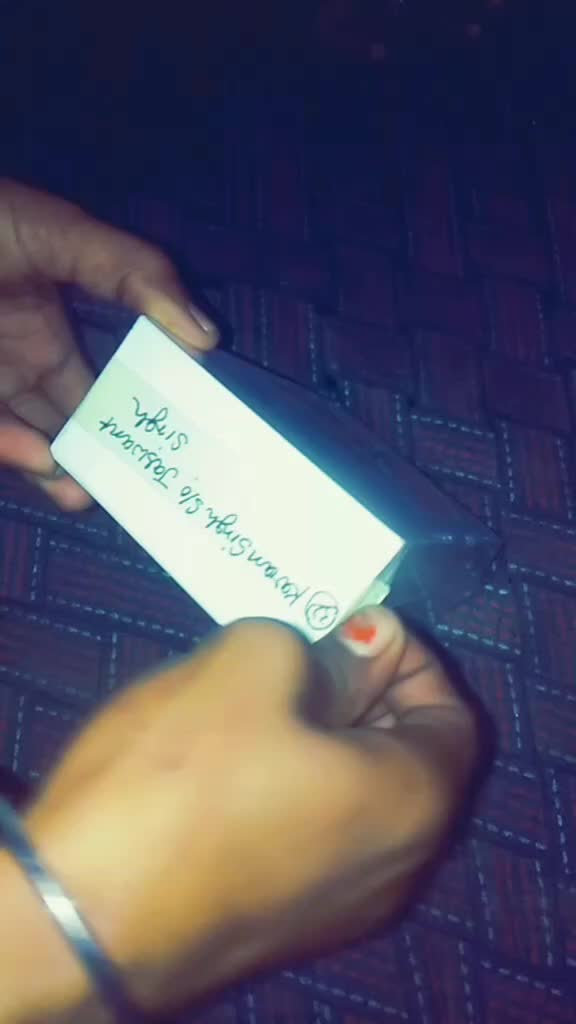 ② Karam Singh S/o Jaswant
Singh